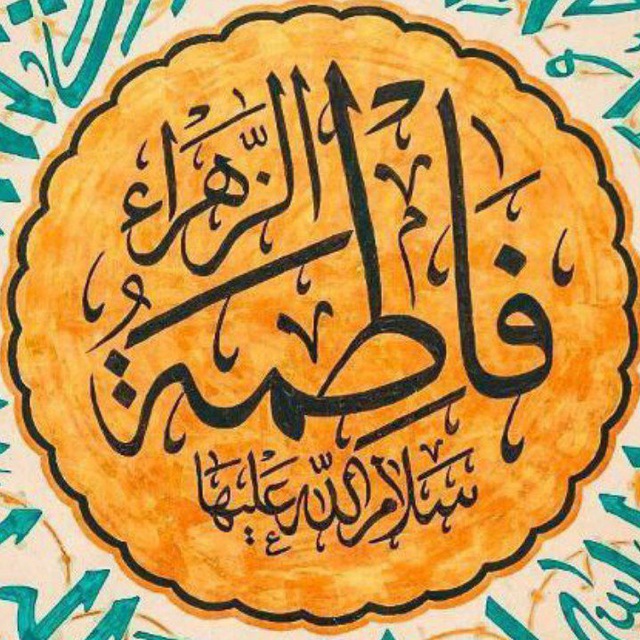 فَاطِمَةُ
الزَّهْرَاء
سَلَامُ اللّٰهِ عَلَيْهَا